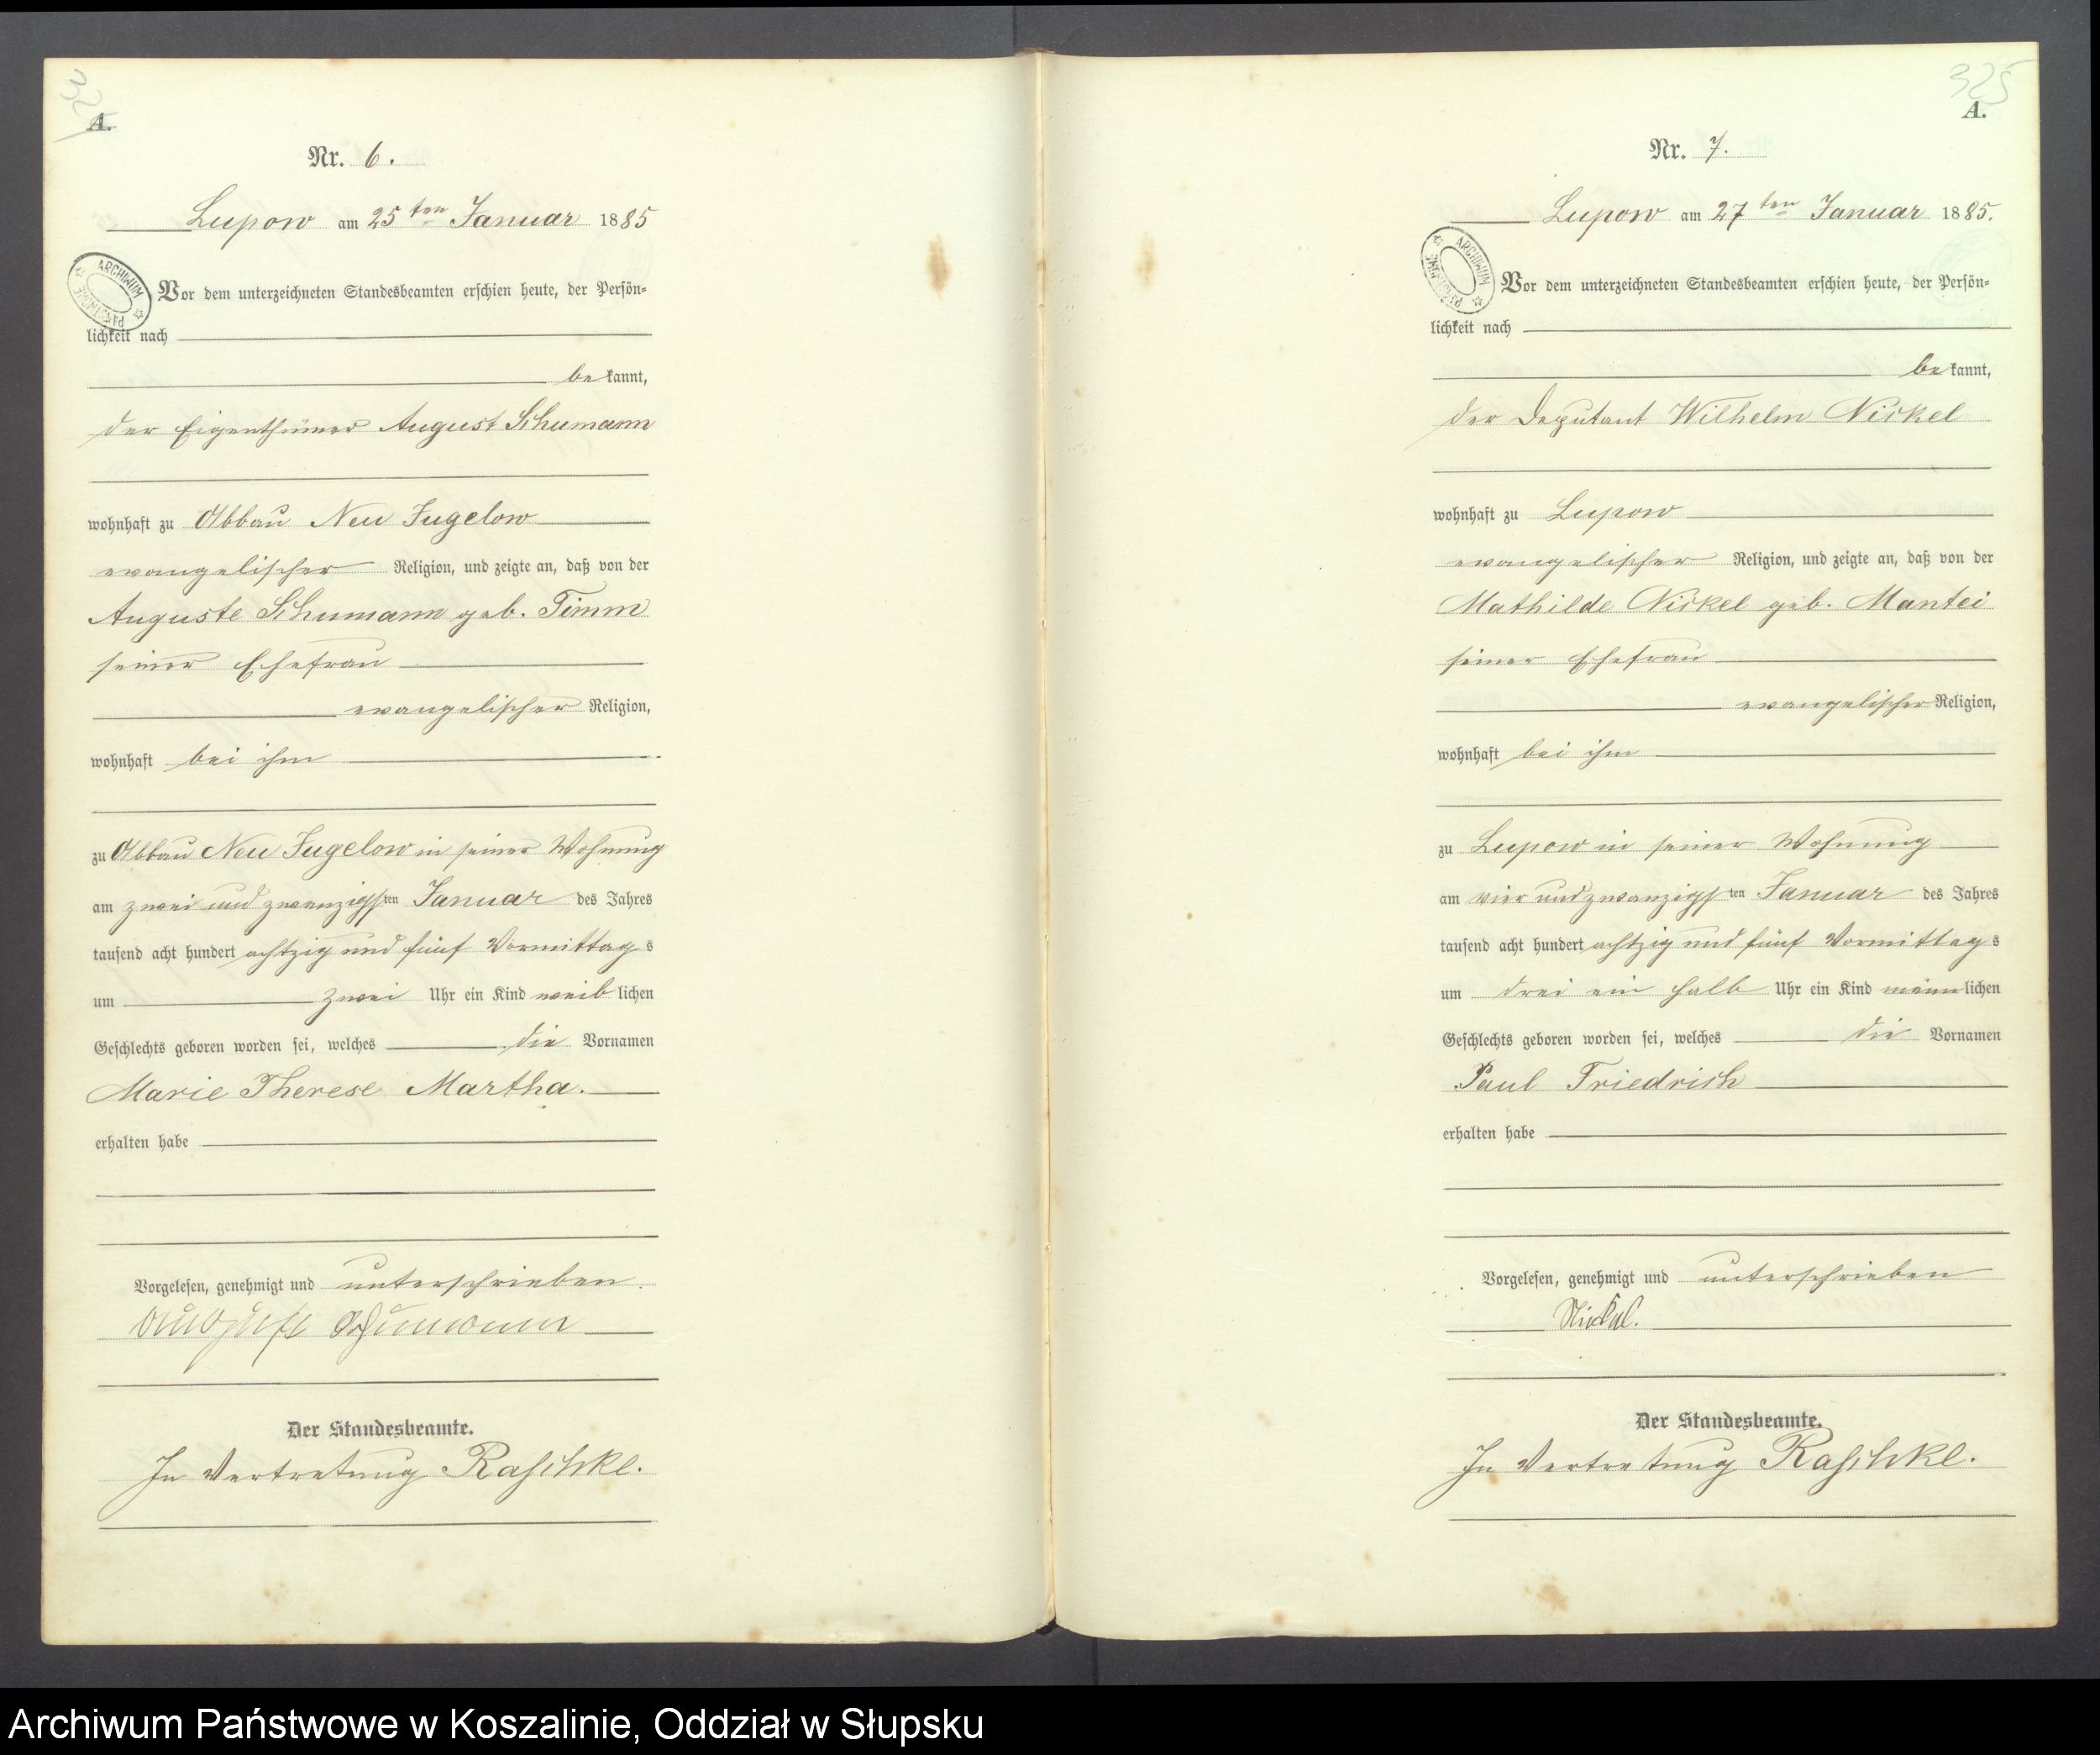 A.
Nr. 6.
Lupow am 25ten Januar 1885
ARCHIWUM PAŃSTWOWE
Vor dem unterzeichneten Standesbeamten erschien heute, der Persön-
lichkeit nach
bekannt,
der Eigenthümer August Schumann
wohnhaft zu Abbau Neu Jugelow
evangelischer Religion, und zeigte an, daß von der
Auguste Schumann geb. Timm
seiner Ehefrau
evangelischer Religion,
wohnhaft bei ihm
zu Abbau Neu Jugelow in seiner Wohnung
am zwei und zwanzigsten Januar des Jahres
tausend acht hundert achtzig und fünf Vormittags
um zwei Uhr ein Kind weiblichen
Geschlechts geboren worden sei, welches die Vornamen
Marie Therese Martha.
erhalten habe
Vorgelesen, genehmigt und unterschrieben
Schumann
Der Standesbeamte.
In Vertretung Raschke.
325
A.
Nr. 7.
Lupow am 27ten Januar 1885.
ARCHIWUM PAŃSTWOWE
Vor dem unterzeichneten Standesbeamten erschien heute, der Persön-
lichkeit nach
bekannt,
der Deputant Wilhelm Nickel
wohnhaft zu Lupow
evangelischer Religion, und zeigte an, daß von der
Mathilde Nickel geb. Mantei
seiner Ehefrau
evangelischer Religion,
wohnhaft bei ihm
zu Lupow in seiner Wohnung
am vier und zwanzigsten Januar des Jahres
tausend acht hundert achtzig und fünf Vormittags
um drei ein halb Uhr ein Kind männlichen
Geschlechts geboren worden sei, welches die Vornamen
Paul Friedrich
erhalten habe
Vorgelesen, genehmigt und unterschrieben
Nickel.
Der Standesbeamte.
In Vertretung Raschke.
Archiwum Państwowe w Koszalinie, Oddział w Słupsku